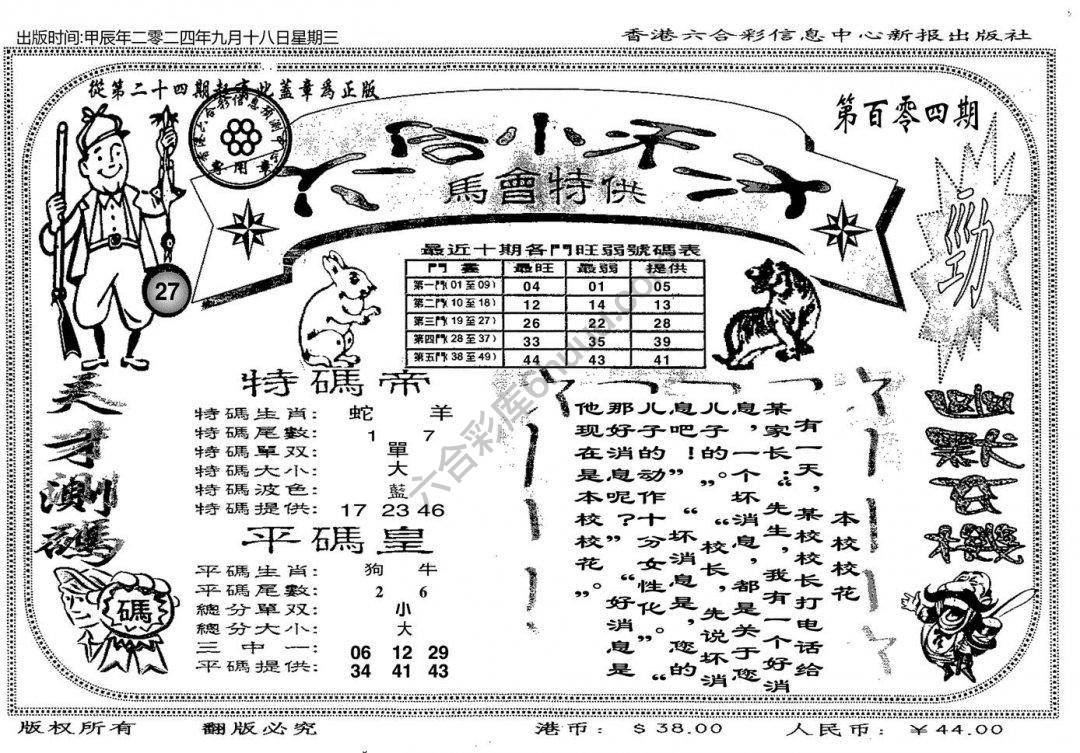 出版时间:甲辰年二零二四年九月十八日星期三
香港六合彩信息中心新报出版社
從第二十四期起盖此蓋章為正版
第百零四期
六合小禾子
馬會特供
勁
27
最近十期各門旺弱號碼表
門畫 最旺 最弱 提供
第一門(01至09) 04 01 05
第二門(10至18) 12 14 13
第三門(19至27) 26 22 28
第四門(28至37) 33 35 39
第五門(38至49) 44 43 41
天才測碼
特碼帝
特碼生肖: 蛇 羊
特碼尾數: 1 7
特碼單双: 單
特碼大小: 大
特碼波色: 藍
特碼提供: 17 23 46
平碼皇
平碼生肖: 狗 牛
平碼尾數: 2 6
總分單双: 小
總分大小: 大
三中一: 06 12 29
平碼提供: 34 41 43
碼
本校校花
某有一天,某校校长打电话给
家长:“先生,我有一个好消
息,一个坏消息,都是关于您
儿子的。”“校长,先说坏消
息吧!”“坏消息是,您的
儿子的动作十分女性化。”
那好消息呢?”“好消息是
他现在是本校校花。”
幽默玄機
六合彩库
版权所有
翻版必究
港币: $38.00
人民币: ¥44.00